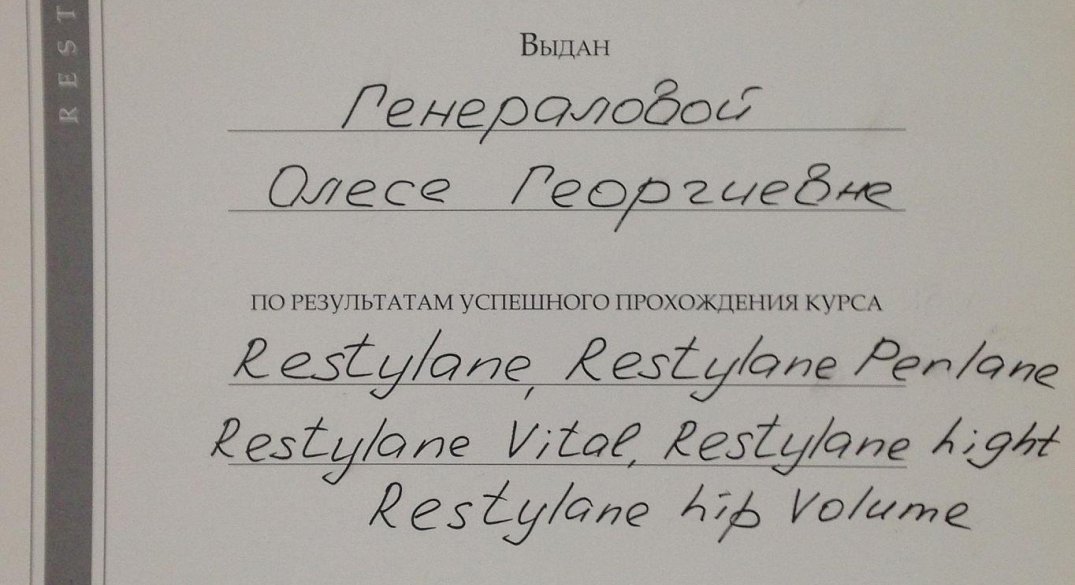 REST
Выдан
Генераловой
Олесе Георгиевне
по результатам успешного прохождения курса
Restylane, Restylane Perlane
Restylane Vital, Restylane Light
Restylane Lip Volume